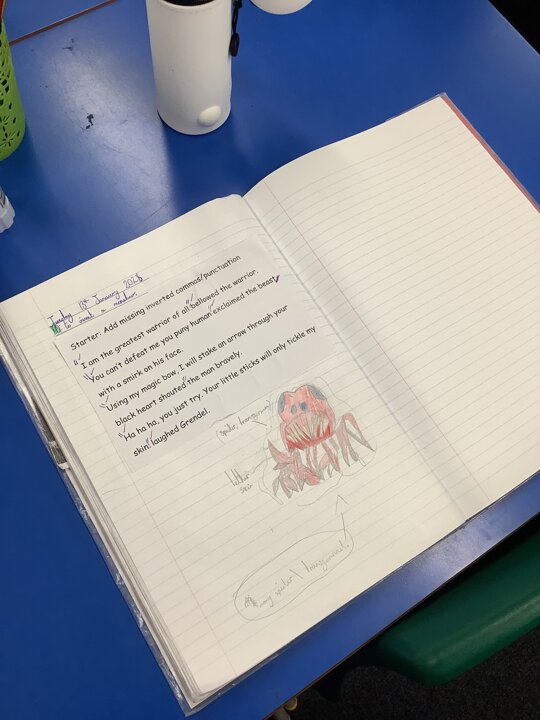 January
Starter: Add missing inverted commas/punctuation
"I am the greatest warrior of all" bellowed the warrior.
"You can't defeat me you puny human" exclaimed the beast
with a smirk on his face.
"Using my magic bow, I will stake an arrow through your
black heart shouted" the man bravely.
"Ha ha ha, you just try. Your little sticks will only tickle my
skin!" laughed Grendel.
spider
skin
spider